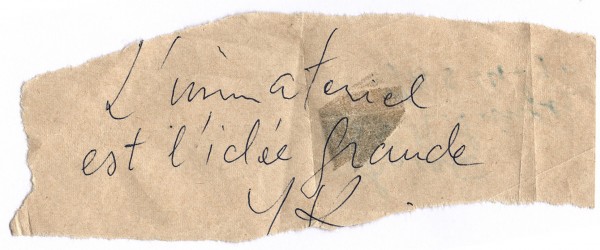 L'immatériel
est l'idée grande
YK